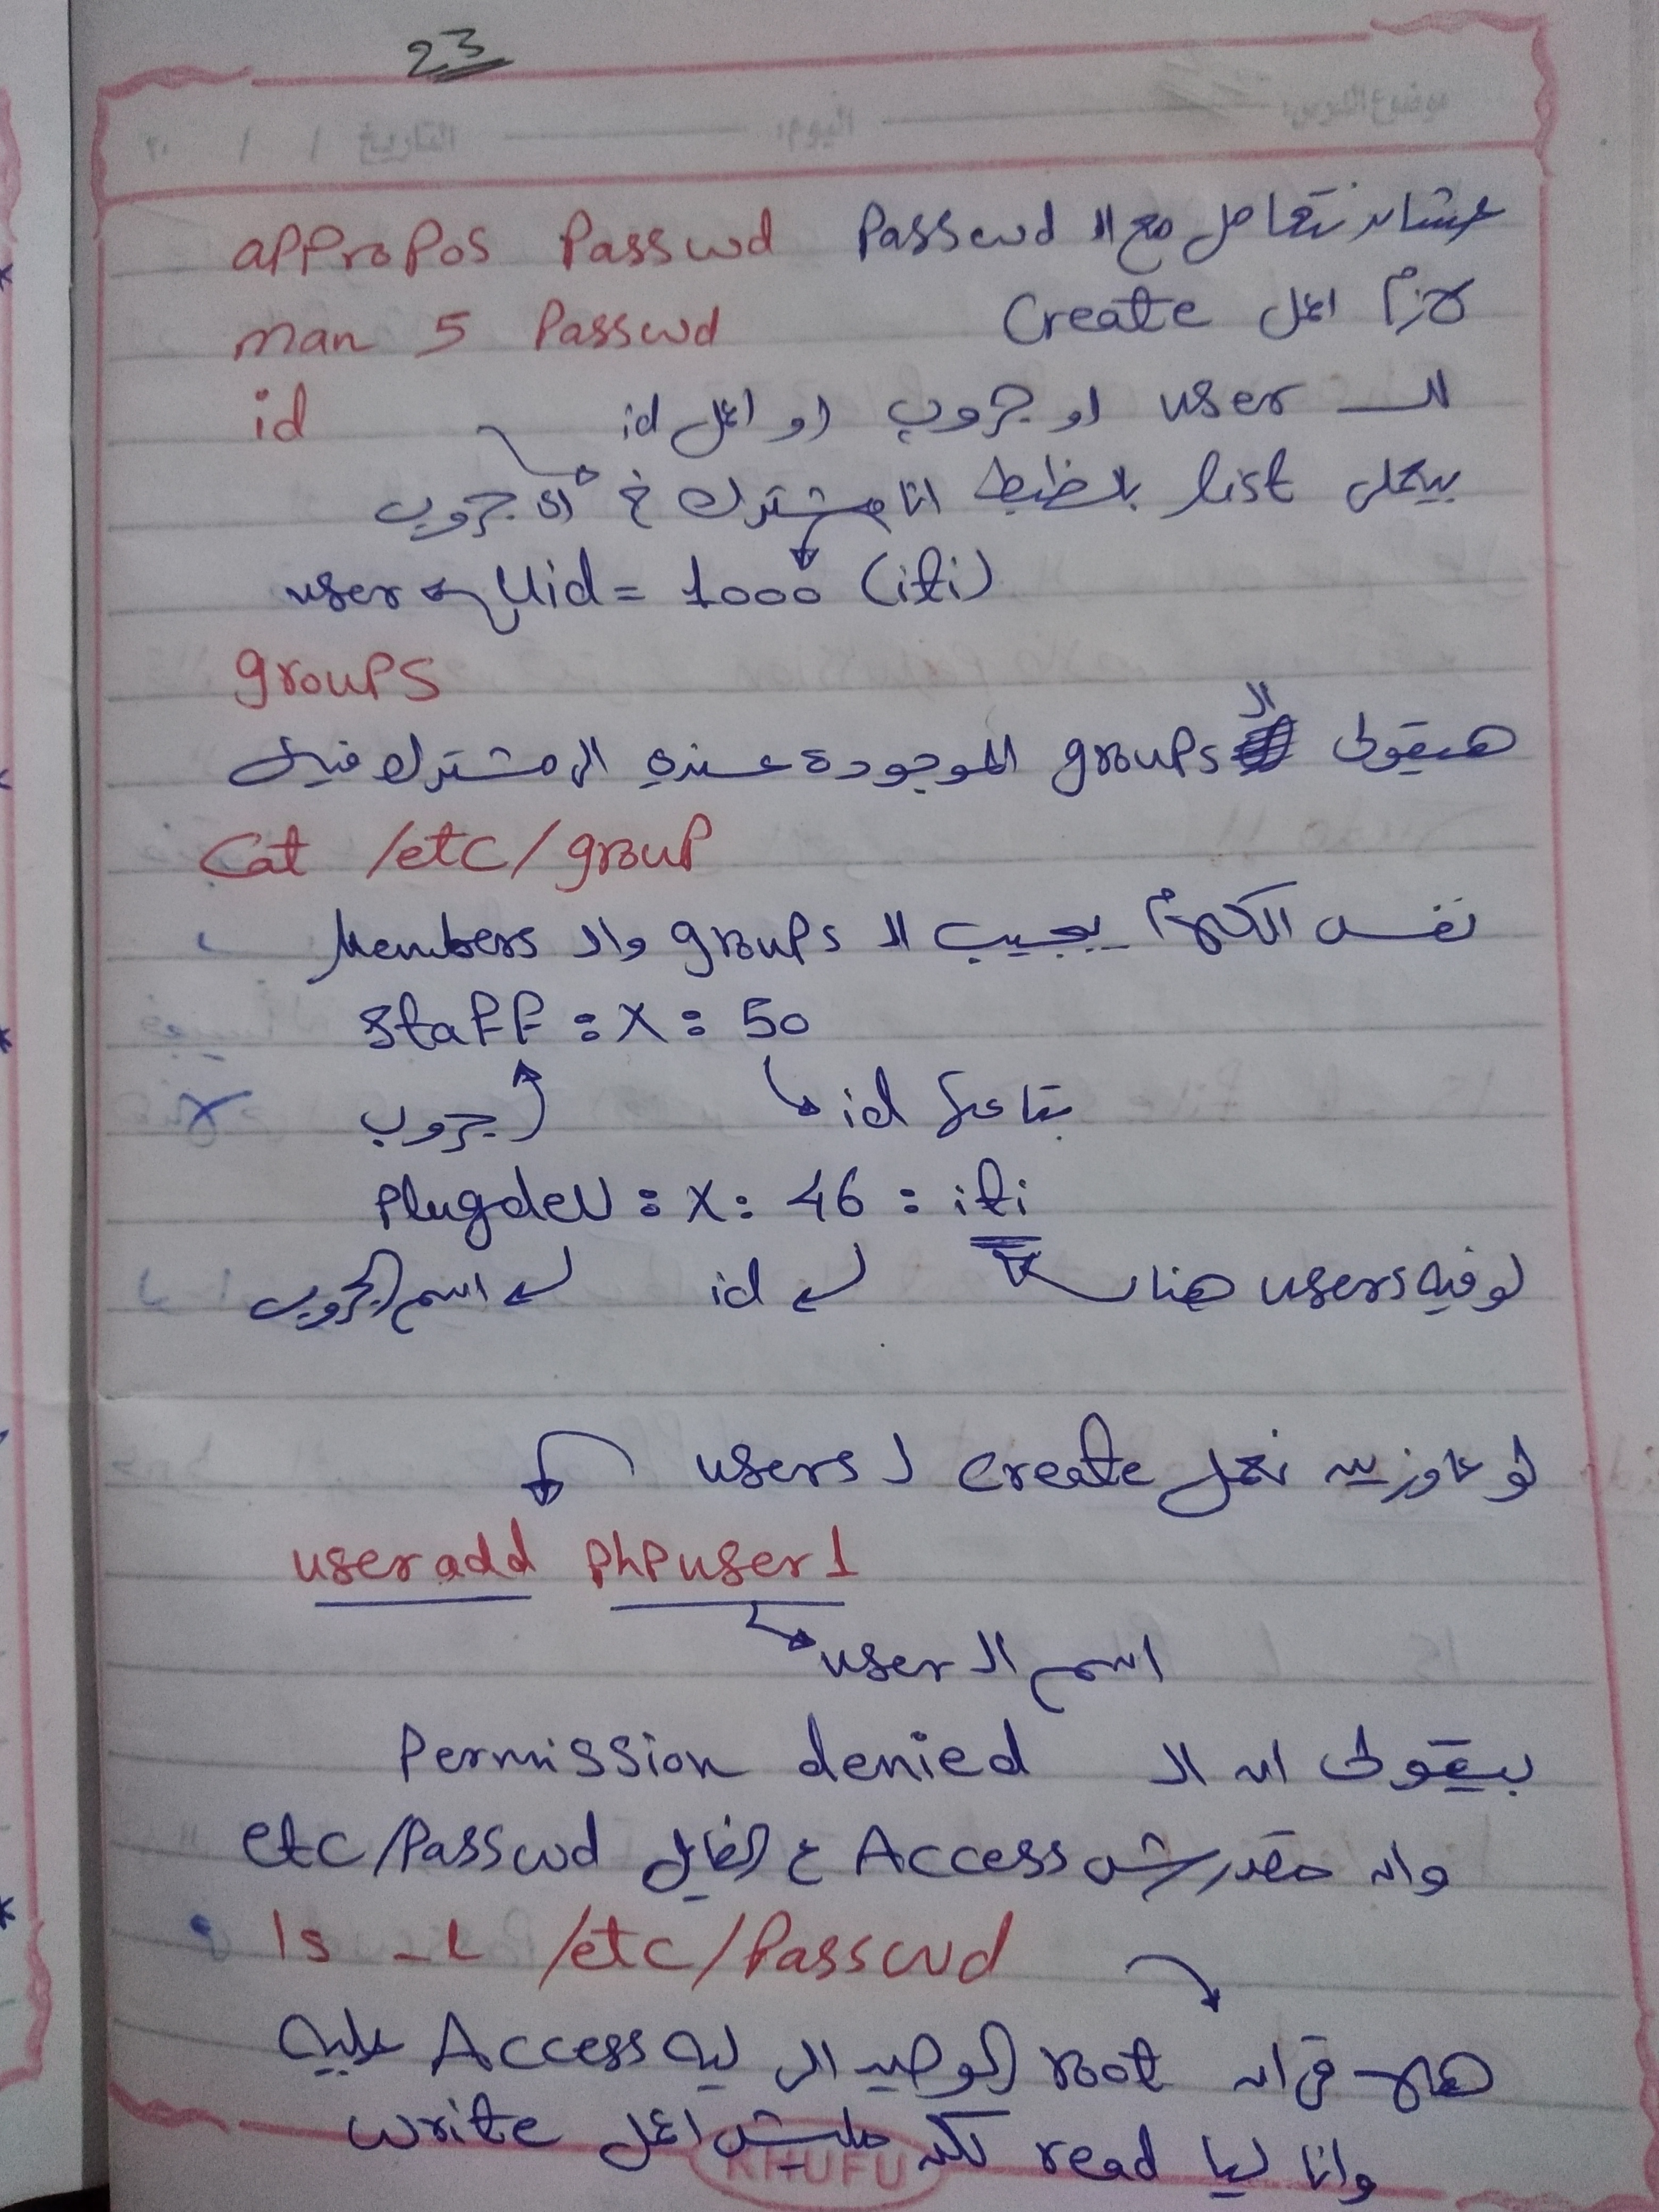 23
الموضوع اليوم التاريخ / / ٢٠
appropos Passwd عشان نتعامل مع الـ Passwd
man 5 Passwd لازم اعمل Create
id الـ user او جروب او اعمل id
بيعملى list بالظبط انا مشترك في اى جروب
user Uid= 1000 (iti)
groups
هيقولى الـ groups الموجودة عندى الى مشترك فيها
Cat /etc/group
نفس الكلام يجيب الـ groups والـ Members
staff : X : 50
جروب id بتاعها
Plugdev : X : 46 : iti
اسم الجروب id لو فيه users هنا
لو عاوزين نعمل create لـ users
useradd phpuser1
اسم الـ user
بيقولى ان الـ Permission denied
وانه مقدرش Access ع الفايل etc/Passwd
ls -l /etc/Passwd
هلاقى ان root الوحيد الى ليه Access عليه
وانا ليا read لكن مليش اعمل write
KHUFU